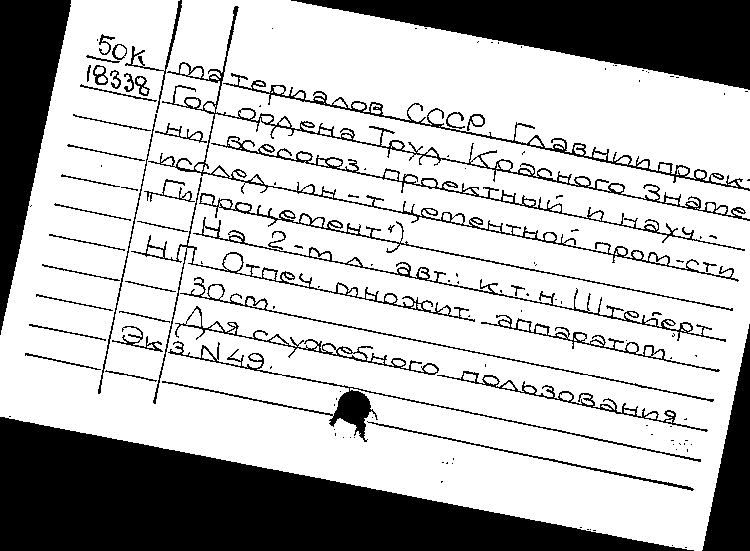 50К
18338
материалов СССР. Главниипроект
Гос. ордена Труд. Красного Знаме
ни всесоюз. проектный и науч.-
исслед. ин-т цементной пром-сти
"Гипроцемент").
На 2-м л. авт.: к.т.н. Штейерт
Н.П. Отпеч. множит. аппаратом.
30 см.
(Для служебного пользования.
Экз. N 49.